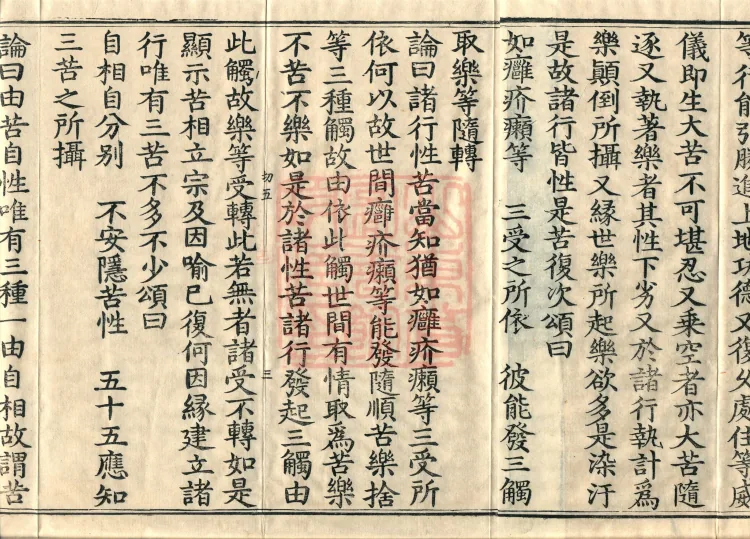 等行能引勝進上地功德又復久處住等威
儀即生大苦不可堪忍又乗空者亦大苦隨
逐又執著樂者其性下劣又於諸行執計爲
樂顚倒所攝又縁世樂所起樂欲多是染汙
是故諸行皆性是苦復次頌曰
如癰疥癩等　三受之所依　彼能發三觸
取樂等隨轉
論曰諸行性苦當知猶如癰疥癩等三受所
依何以故世間癰疥癩等能發隨順苦樂捨
等三種觸故由依此觸世間有情取爲苦樂
不苦不樂如是於諸性苦諸行發起三觸由
初五
三
此觸故樂等受轉此若無者諸受不轉如是
顯示苦相立宗及因喻已復何因縁建立諸
行唯有三苦不多不少頌曰
自相自分别　不安隱苦性　五十五應知
三苦之所攝
論曰由苦自性唯有三種一由自相故謂苦